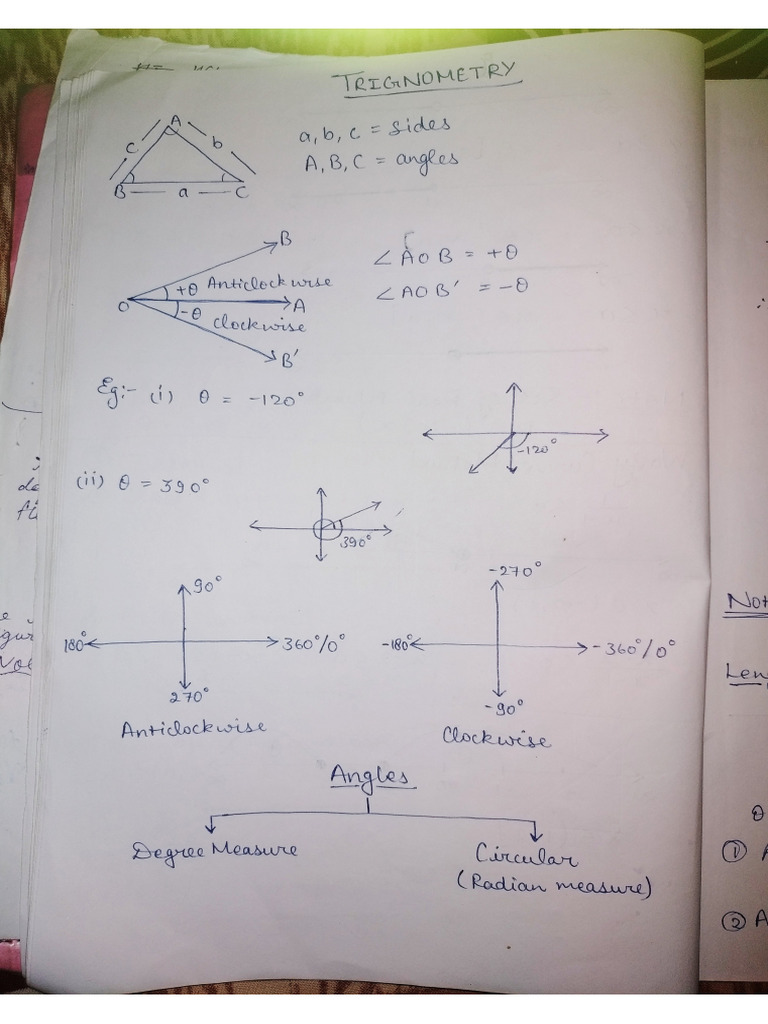 TRIGNOMETRY
A
c
b
B
a
C
a, b, c = sides
A, B, C = angles
B
+θ Anticlockwise
O
A
-θ Clockwise
B'
∠AOB = +θ
∠AOB' = -θ
Eg:- (i) θ = -120°
-120°
(ii) θ = 390°
390°
90°
180°
360°/0°
270°
Anticlockwise
-270°
-180°
-360°/0°
-90°
Clockwise
Angles
Degree Measure
Circular
(Radian measure)
Not
Len
θ
①
② A